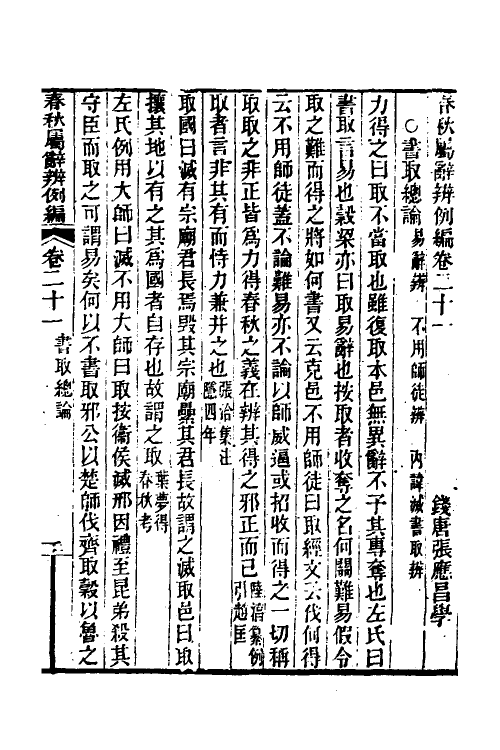 春秋屬辭辨例編卷二十一
錢唐張應昌學
○書取總論 易辭辨 不用師徒辨 內諱滅書取辨
力得之曰取不當取也雖復取本邑無異辭不予其專奪也左氏曰
書取言易也穀梁亦曰取易辭也按取者收奪之名何關難易假令
取之難而得之將如何書又云克邑不用師徒曰取經文云伐何得
云不用師徒蓋不論難易亦不論以師威逼或招收而得之一切稱
取取之非正皆為力得春秋之義在辨其得之邪正而已 陸淳纂例引趙匡
取者言非其有而恃力兼并之也 張洽集注隱四年
取國曰滅有宗廟君長焉毀其宗廟纍其君長故謂之滅取邑曰取
攘其地以有之其為國者自存也故謂之取 葉夢得春秋考
左氏例用大師曰滅不用大師曰取按衛侯滅邢因禮至昆弟殺其
守臣而取之可謂易矣何以不書取邪公以楚師伐齊取穀以魯之
春秋屬辭辨例編 卷二十一 書取總論 一